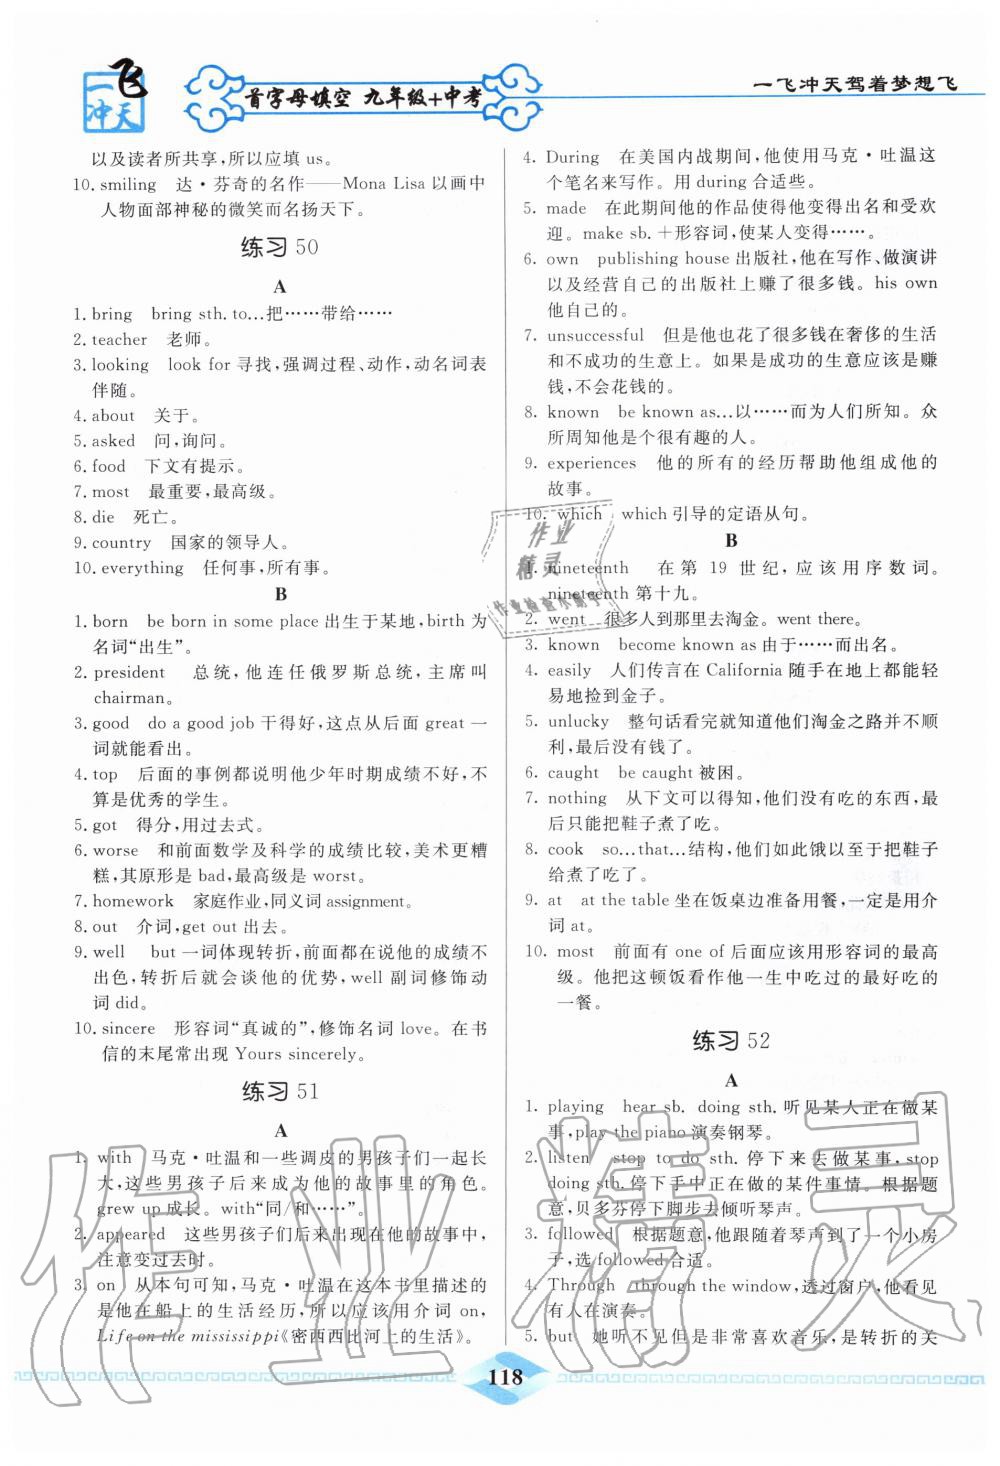 一飞冲天
首字母填空 九年级+中考
一飞冲天驾着梦想飞
以及读者所共享,所以应填 us。
10. smiling 达·芬奇的名作——Mona Lisa 以画中
人物面部神秘的微笑而名扬天下。
练习 50
A
1. bring bring sth. to…把……带给……
2. teacher 老师。
3. looking look for 寻找,强调过程、动作,动名词表
伴随。
4. about 关于。
5. asked 问,询问。
6. food 下文有提示。
7. most 最重要,最高级。
8. die 死亡。
9. country 国家的领导人。
10. everything 任何事,所有事。
B
1. born be born in some place 出生于某地,birth 为
名词“出生”。
2. president 总统,他连任俄罗斯总统,主席叫
chairman。
3. good do a good job 干得好,这点从后面 great 一
词就能看出。
4. top 后面的事例都说明他少年时期成绩不好,不
算是优秀的学生。
5. got 得分,用过去式。
6. worse 和前面数学及科学的成绩比较,美术更糟
糕,其原形是 bad,最高级是 worst。
7. homework 家庭作业,同义词 assignment。
8. out 介词,get out 出去。
9. well but 一词体现转折,前面都在说他的成绩不
出色,转折后就会谈他的优势,well 副词修饰动
词 did。
10. sincere 形容词“真诚的”,修饰名词 love。在书
信的末尾常出现 Yours sincerely。
练习 51
A
1. with 马克·吐温和一些调皮的男孩子们一起长
大,这些男孩子后来成为他的故事里的角色。
grew up 成长。with“同/和……”。
2. appeared 这些男孩子们后来出现在他的故事中,
注意变过去时。
3. on 从本句可知,马克·吐温在这本书里描述的
是他在船上的生活经历,所以应该用介词 on,
Life on the mississippi《密西西比河上的生活》。
4. During 在美国内战期间,他使用马克·吐温这
个笔名来写作。用 during 合适些。
5. made 在此期间他的作品使得他变得出名和受欢
迎。make sb. +形容词,使某人变得……。
6. own publishing house 出版社,他在写作、做演讲
以及经营自己的出版社上赚了很多钱。his own
他自己的。
7. unsuccessful 但是他也花了很多钱在奢侈的生活
和不成功的生意上。如果是成功的生意应该是赚
钱,不会花钱的。
8. known be known as…以……而为人们所知。众
所周知他是个很有趣的人。
9. experiences 他的所有的经历帮助他组成他的
故事。
10. which which 引导的定语从句。
B
1. nineteenth 在第 19 世纪,应该用序数词。
nineteenth 第十九。
2. went 很多人到那去淘金。went there。
3. known become known as 由于……而出名。
4. easily 人们传言在 California 随手在地上都能轻
易地捡到金子。
5. unlucky 整句话看完就知道他们淘金之路并不顺
利,最后没有钱了。
6. caught be caught 被困。
7. nothing 从下文可以得知,他们没有吃的东西,最
后只能把鞋子煮了吃。
8. cook so…that…结构,他们如此饿以至于把鞋子
给煮了吃了。
9. at at the table 坐在饭桌边准备用餐,一定是用介
词 at。
10. most 前面有 one of 后面应该用形容词的最高
级。他把这顿饭看作他一生中吃过的最好吃的
一餐。
练习 52
A
1. playing hear sb. doing sth. 听见某人正在做某
事,play the piano 演奏钢琴。
2. listen stop to do sth. 停下来去做某事,stop
doing sth. 停下手中正在做的某件事情。根据题
意,贝多芬停下脚步去倾听琴声。
3. followed 根据题意,他跟随着琴声到了一个小房
子,选 followed 合适。
4. Through through the window,透过窗户,他看见
有人在演奏。
5. but 她听不见但是非常喜欢音乐,是转折的关
118
作业精灵
作业检查小助手
作业精灵